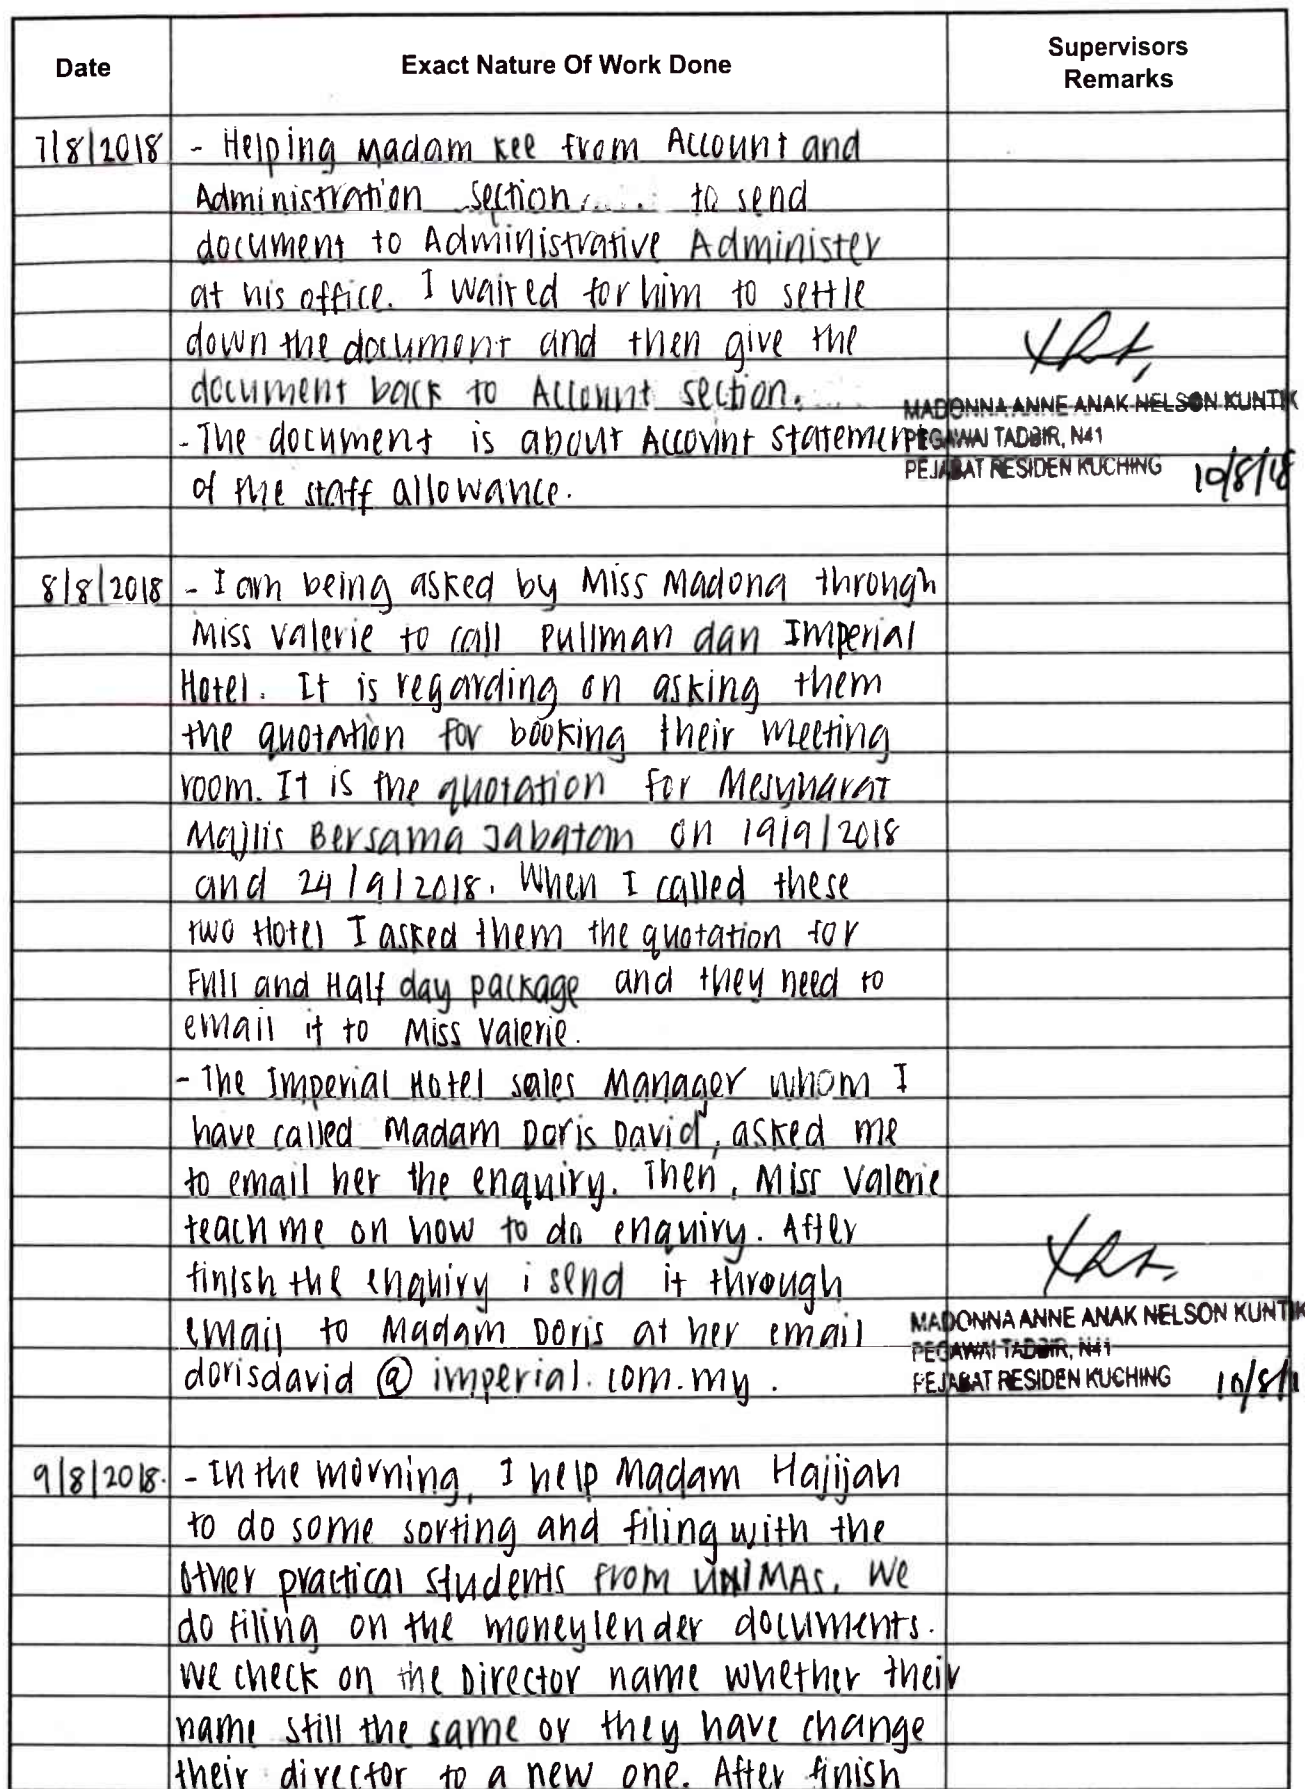 Date Exact Nature Of Work Done Supervisors Remarks
7/8/2018 - Helping Madam Kee from Account and
Administration section to send
document to Administrative Administer
at his office. I waited for him to settle
down the document and then give the
document back to Account section.
MADONNA ANNE ANAK NELSON KUNTIK
- The document is about Account Statement
PEGAWAI TADBIR, N41
PEJABAT RESIDEN KUCHING 10/8/18
of the staff allowance.
8/8/2018 - I am being asked by Miss Madona through
Miss Valerie to call Pullman dan Imperial
Hotel. It is regarding on asking them
the quotation for booking their meeting
room. It is the quotation for Mesyuarat
Majlis Bersama Jabatan on 19/9/2018
and 24/9/2018. When I called these
two Hotel I asked them the quotation for
Full and Half day package and they need to
email it to Miss Valerie.
- The Imperial Hotel sales Manager whom I
have called Madam Doris David, asked me
to email her the enquiry. Then, Miss Valerie
teach me on how to do enquiry. After
finish the enquiry i send it through
email to Madam Doris at her email
MADONNA ANNE ANAK NELSON KUNTIK
PEGAWAI TADBIR, N41
dorisdavid@imperial.com.my.
PEJABAT RESIDEN KUCHING 10/8/1
9/8/2018. - In the morning, I help Madam Hajijah
to do some sorting and filing with the
other practical students from UNIMAS. We
do filing on the moneylender documents.
We check on the Director name whether their
name still the same or they have change
their director to a new one. After finish